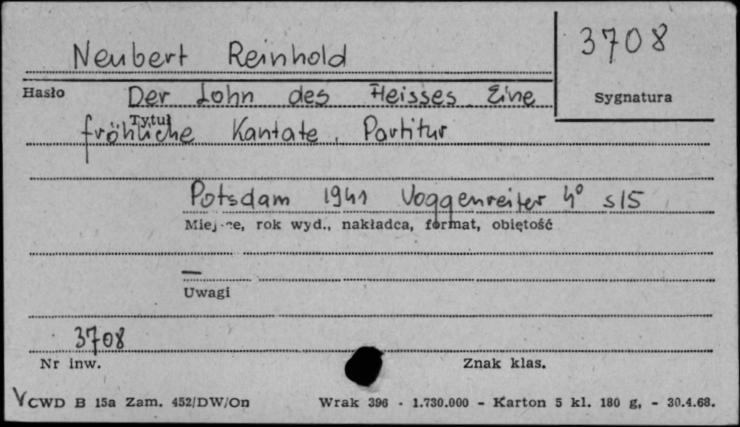 3708
Neubert Reinhold
Hasło Der Lohn des Fleisses Eine
Sygnatura
Tytuł
fröhliche Kantate, Partitur
Potsdam 1941 Voggenreiter 4° s15
Miejsce, rok wyd., nakładca, format, objętość
—
Uwagi
3708
Nr inw. Znak klas.
V CWD B 15a Zam. 452/DW/On Wrak 396 - 1.730.000 - Karton 5 kl. 180 g, - 30.4.68.